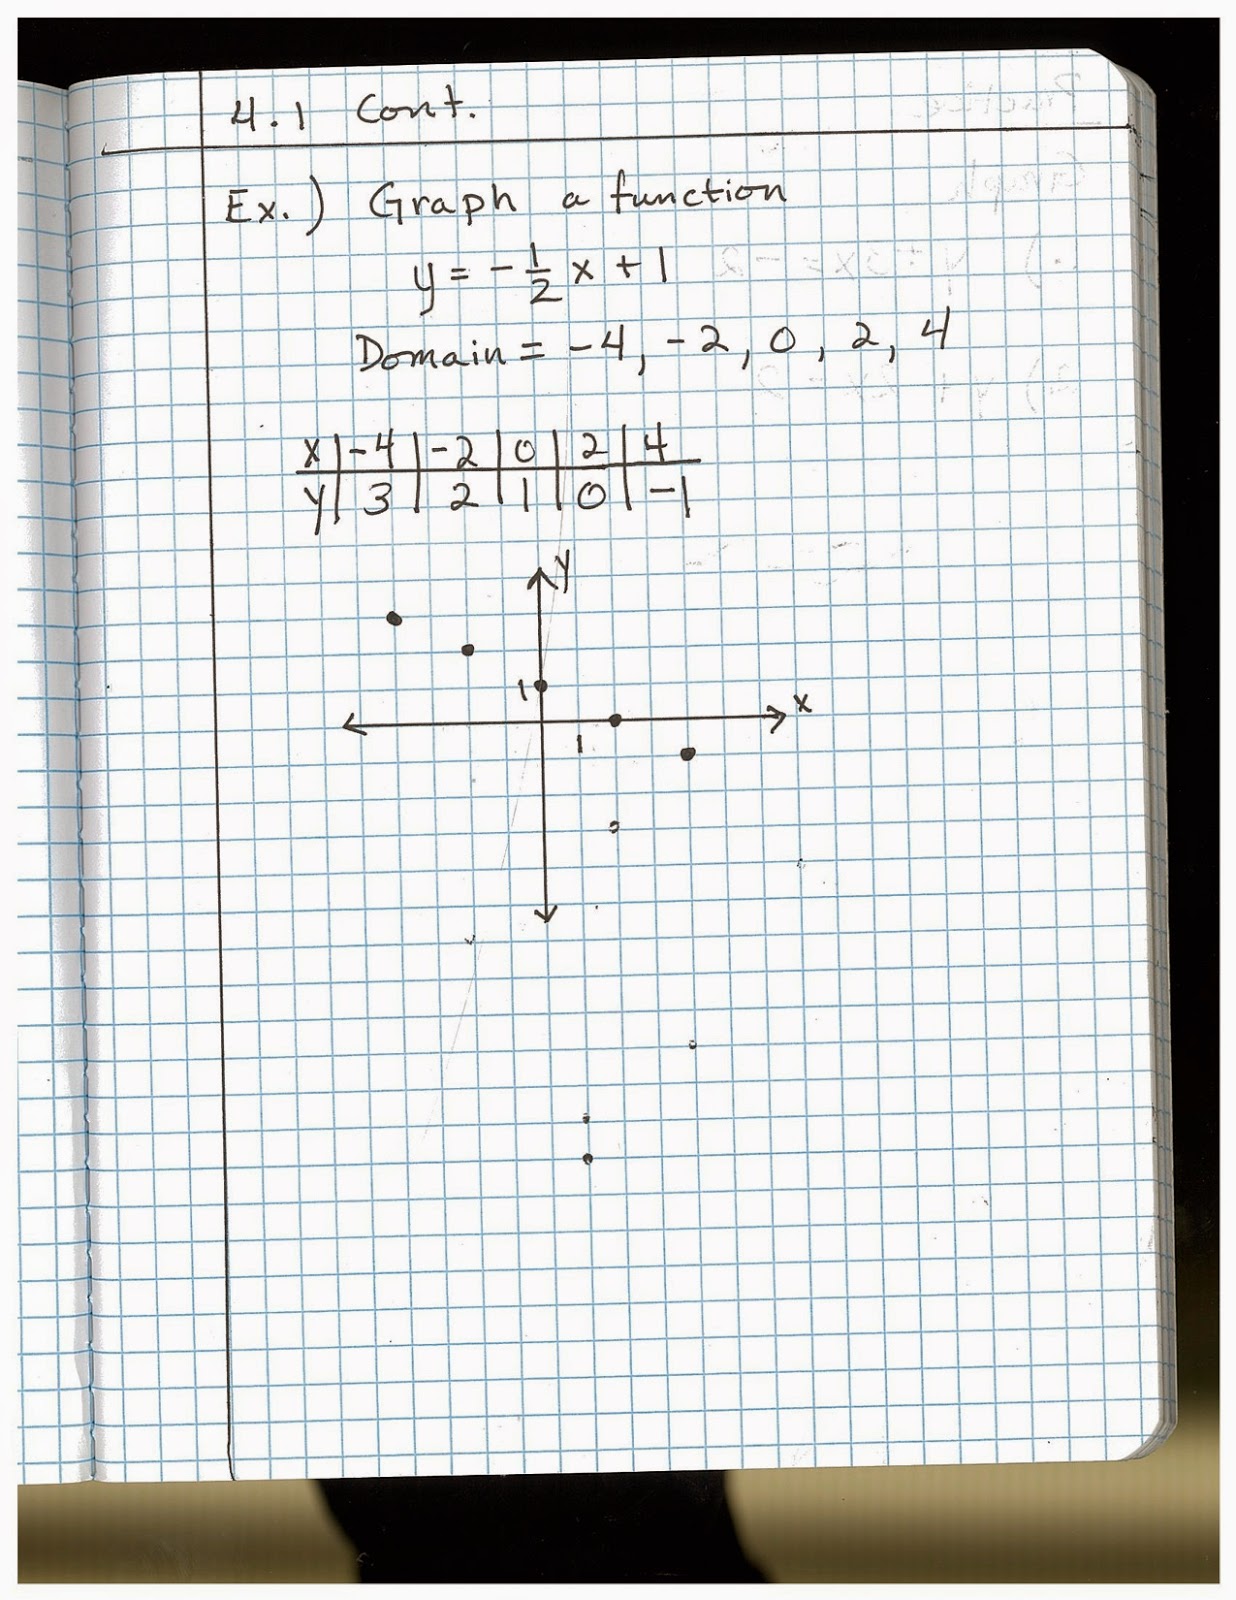 4.1 Cont.
Ex.) Graph a function
y = -1/2 x + 1
Domain = -4, -2, 0, 2, 4
x | -4 | -2 | 0 | 2 | 4
y | 3 | 2 | 1 | 0 | -1
y
1
x
1